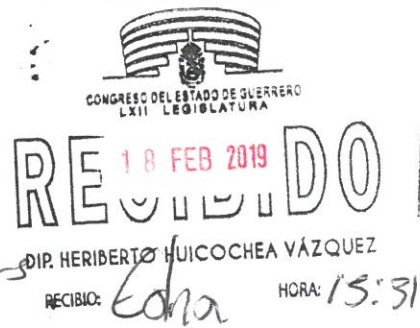 CONGRESO DEL ESTADO DE GUERRERO
LXII LEGISLATURA
RECIBIDO
18 FEB 2019
DIP. HERIBERTO HUICOCHEA VÁZQUEZ
RECIBIO: Edna HORA: 15:31